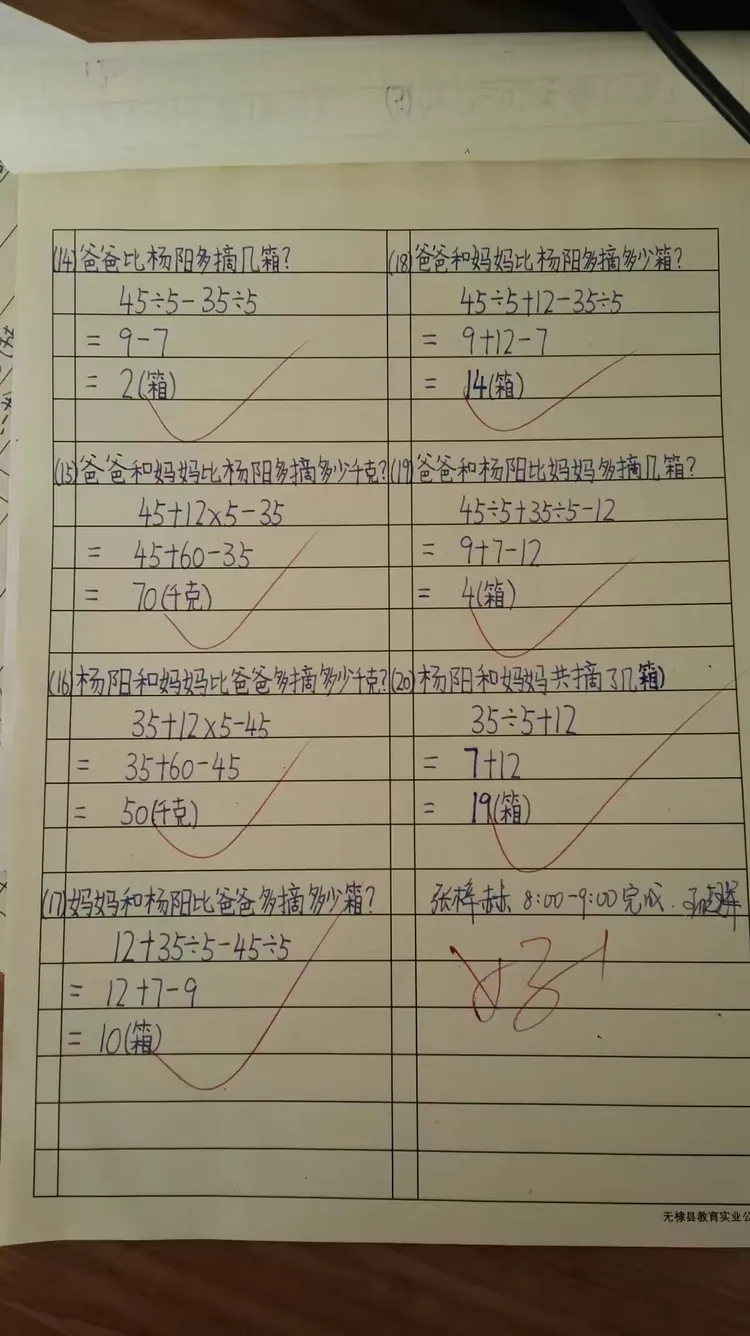 (14)爸爸比杨阳多摘几箱?
45÷5-35÷5
= 9-7
= 2(箱)
(15)爸爸和妈妈比杨阳多摘多少千克?
45+12×5-35
= 45+60-35
= 70(千克)
(16)杨阳和妈妈比爸爸多摘多少千克?
35+12×5-45
= 35+60-45
= 50(千克)
(17)妈妈和杨阳比爸爸多摘多少箱?
12+35÷5-45÷5
= 12+7-9
= 10(箱)
(18)爸爸和妈妈比杨阳多摘多少箱?
45÷5+12-35÷5
= 9+12-7
= 14(箱)
(19)爸爸和杨阳比妈妈多摘几箱?
45÷5+35÷5-12
= 9+7-12
= 4(箱)
(20)杨阳和妈妈共摘了几箱)
35÷5+12
= 7+12
= 19(箱)
张梓赫 8:00-9:00完成.
好
无棣县教育实业公